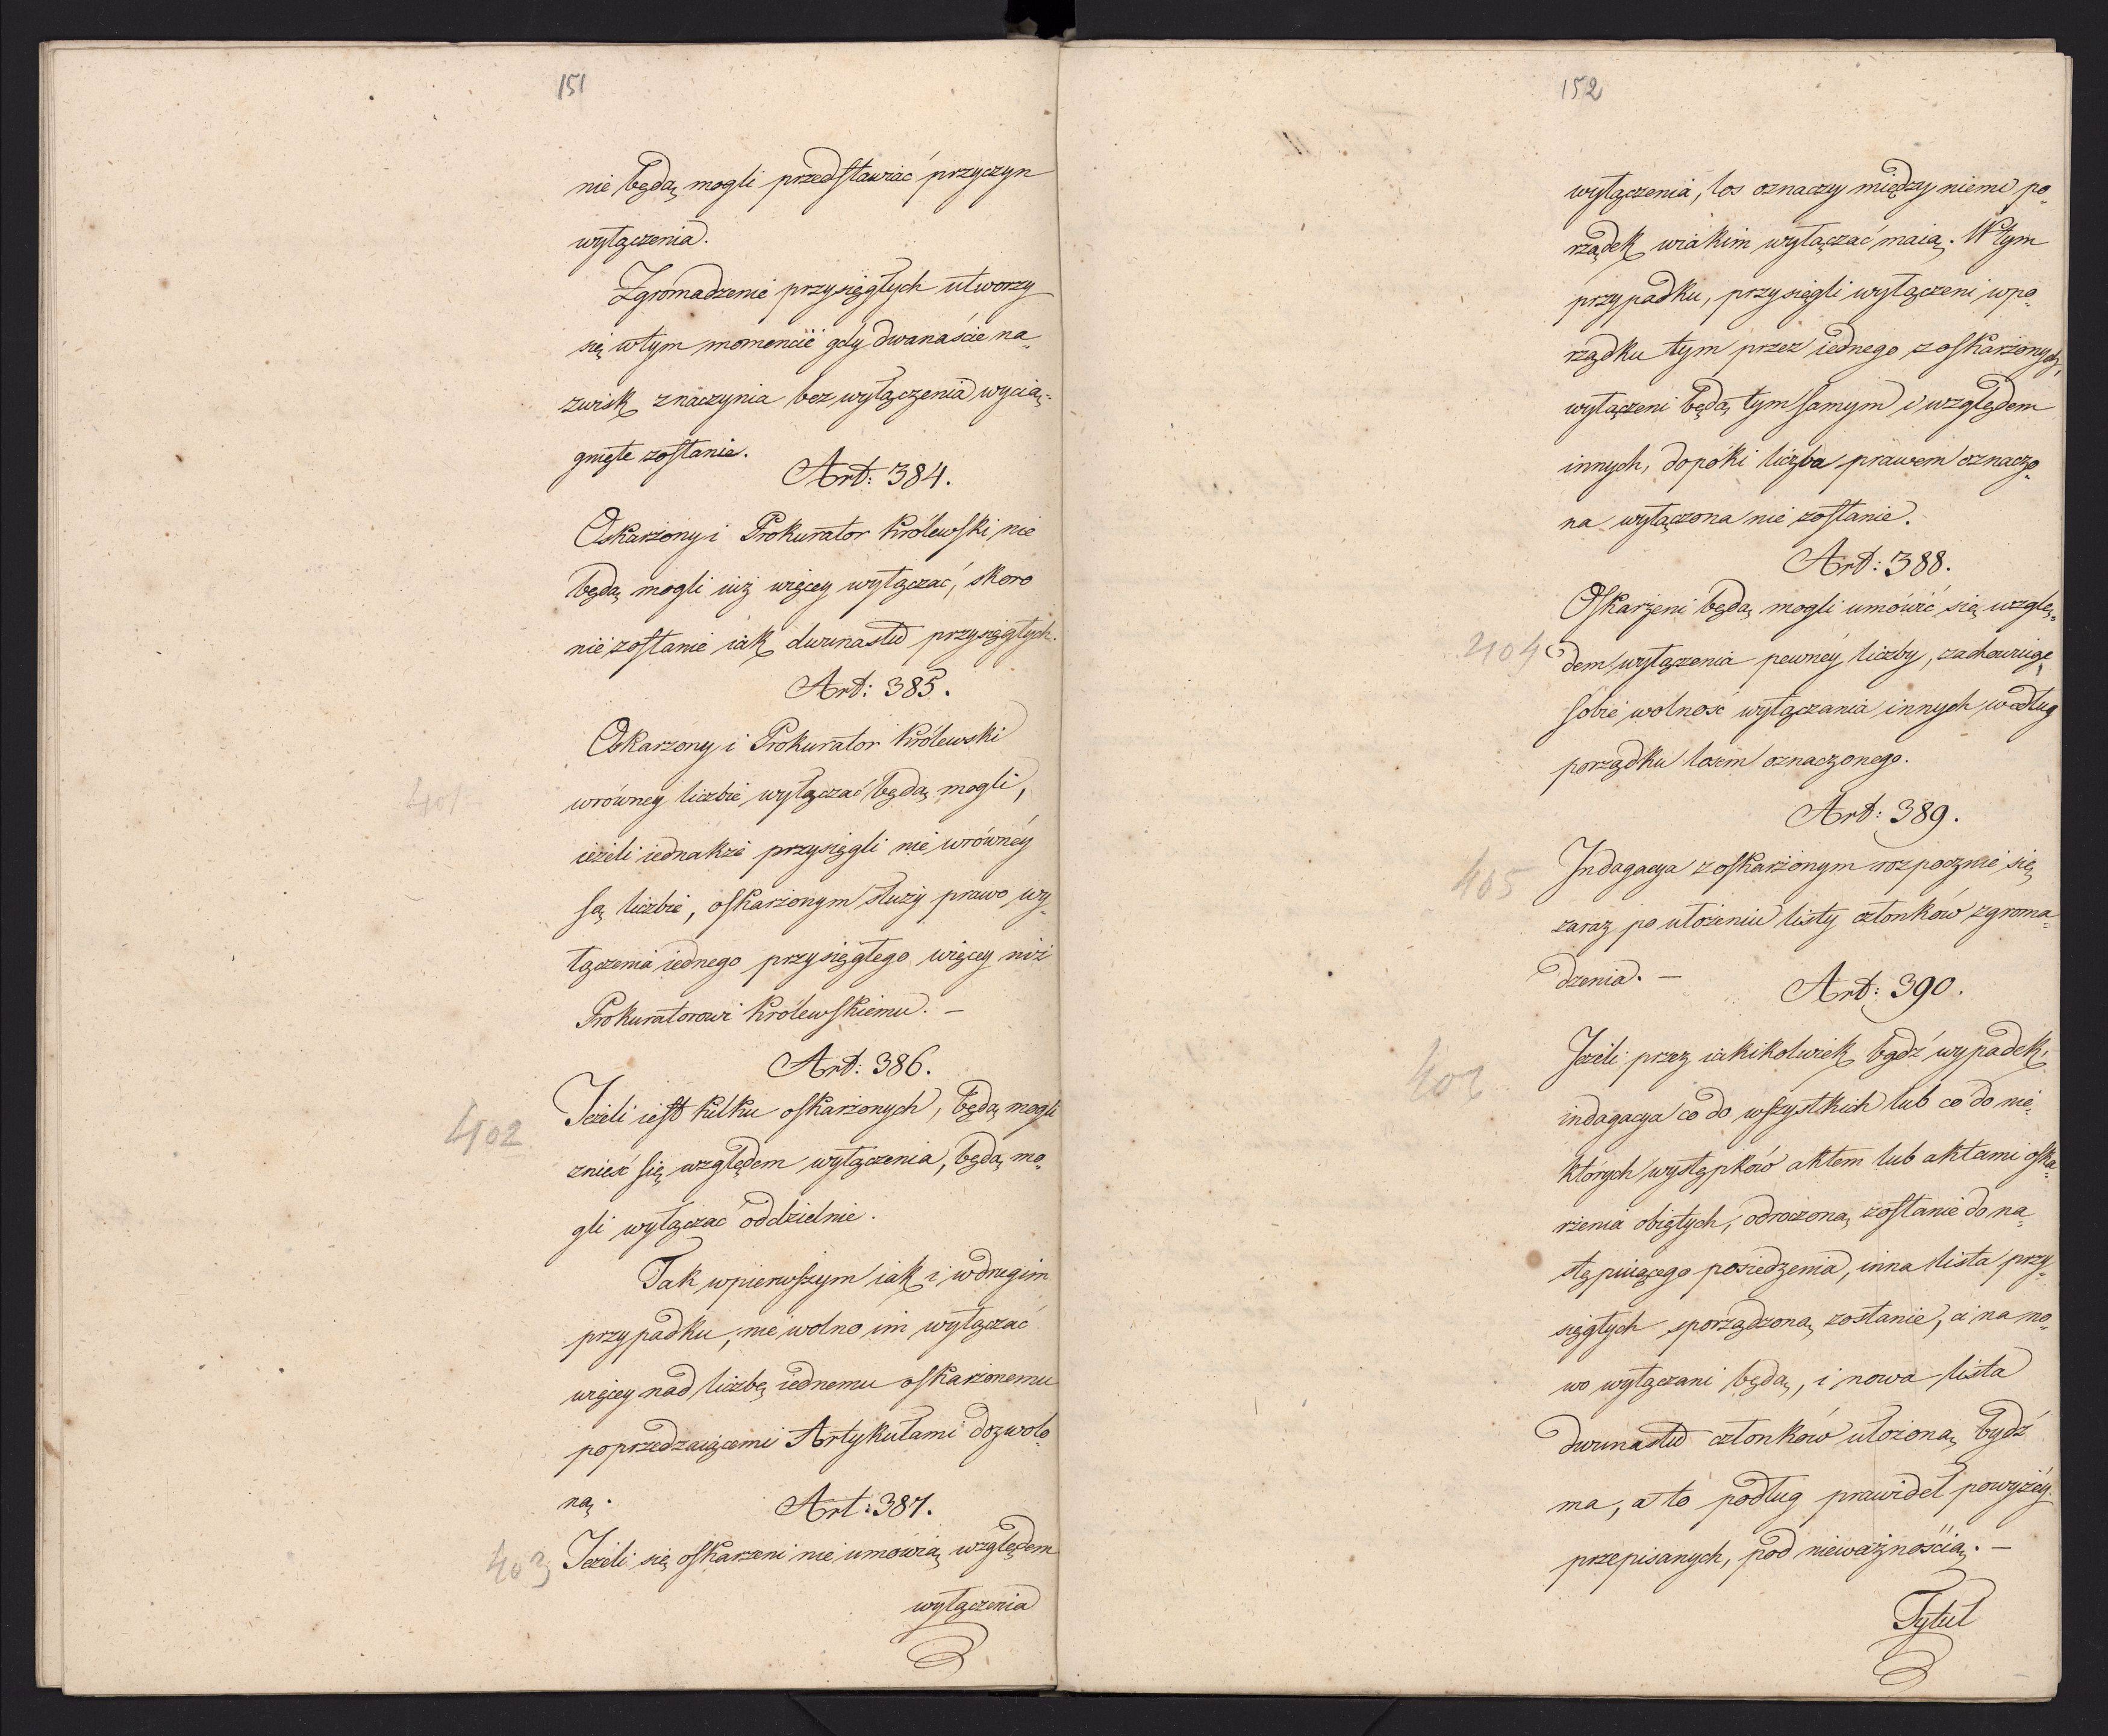 151
nie będą mogli przedstawiać przyczyn
wyłączenia.
Zgromadzenie przysięgłych utworzy
się w tym momencie gdy dwanaście na„
zwisk z naczynia bez wyłączenia wycią„
gnięte zostanie.
Art: 384.
Oskarżony i Prokurator Królewski nie
będą mogli iuż więcey wyłączać, skoro
nie zostanie iak dwunastu przysięgłych.
Art: 385.
Oskarżony i Prokurator Królewski
401
w równey liczbie wyłączać będą mogli,
ieżeli iednakże przysięgli nie w równéy
są liczbie, oskarżonym służy prawo wy„
łączenia iednego przysięgłego więcey niż
Prokuratorowi Królewskiemu. —
Art: 386.
Jeżeli iest kilku oskarżonych, będą mogli
402
znieść się względem wyłączenia, będą mo„
gli wyłączać oddzielnie.
Tak w pierwszym iak i w drugim
przypadku, nie wolno im wyłączać
więcey nad liczbę iednemu oskarżonemu
poprzedzaiącemi Artykułami dozwolo„
ną.
Art: 387.
403 Jeżeli się oskarżeni nie umówią względem
wyłączenia
152
wyłączenia, los oznaczy między niemi po„
rządek w iakim wyłączać maią. W tym
przypadku, przysięgli wyłączeni w po„
rządku tym przez iednego z oskarżonych,
wyłączeni będą tym samym i względem
innych, dopóki liczba prawem oznaczo„
na wyłączona nie zostanie.
Art: 388.
Oskarżeni będą mogli umówić się wzglę„
404 dem wyłączenia pewnéy liczby, zachowuiąc
sobie wolność wyłączania innych według
porządku losem oznaczonego.
Art: 389.
405 Indagacya z oskarżonym rozpocznie się
zaraz po ułożeniu listy członków zgroma„
dzenia. —
Art: 390.
Jeżeli przez iakikolwiek bądź wypadek,
406
indagacya co do wszystkich lub co do nie„
których występków aktem lub aktami oska„
rżenia obiętych, odroczoną zostanie do na„
stępuiącego posiedzenia, inna lista przy„
sięgłych sporządzoną zostanie, i na no„
wo wyłączani będą, i nowa lista
dwunastu członków ułożoną bydź
ma, a to podług prawideł powyżéy
przepisanych, pod nieważnością. —
Tytuł